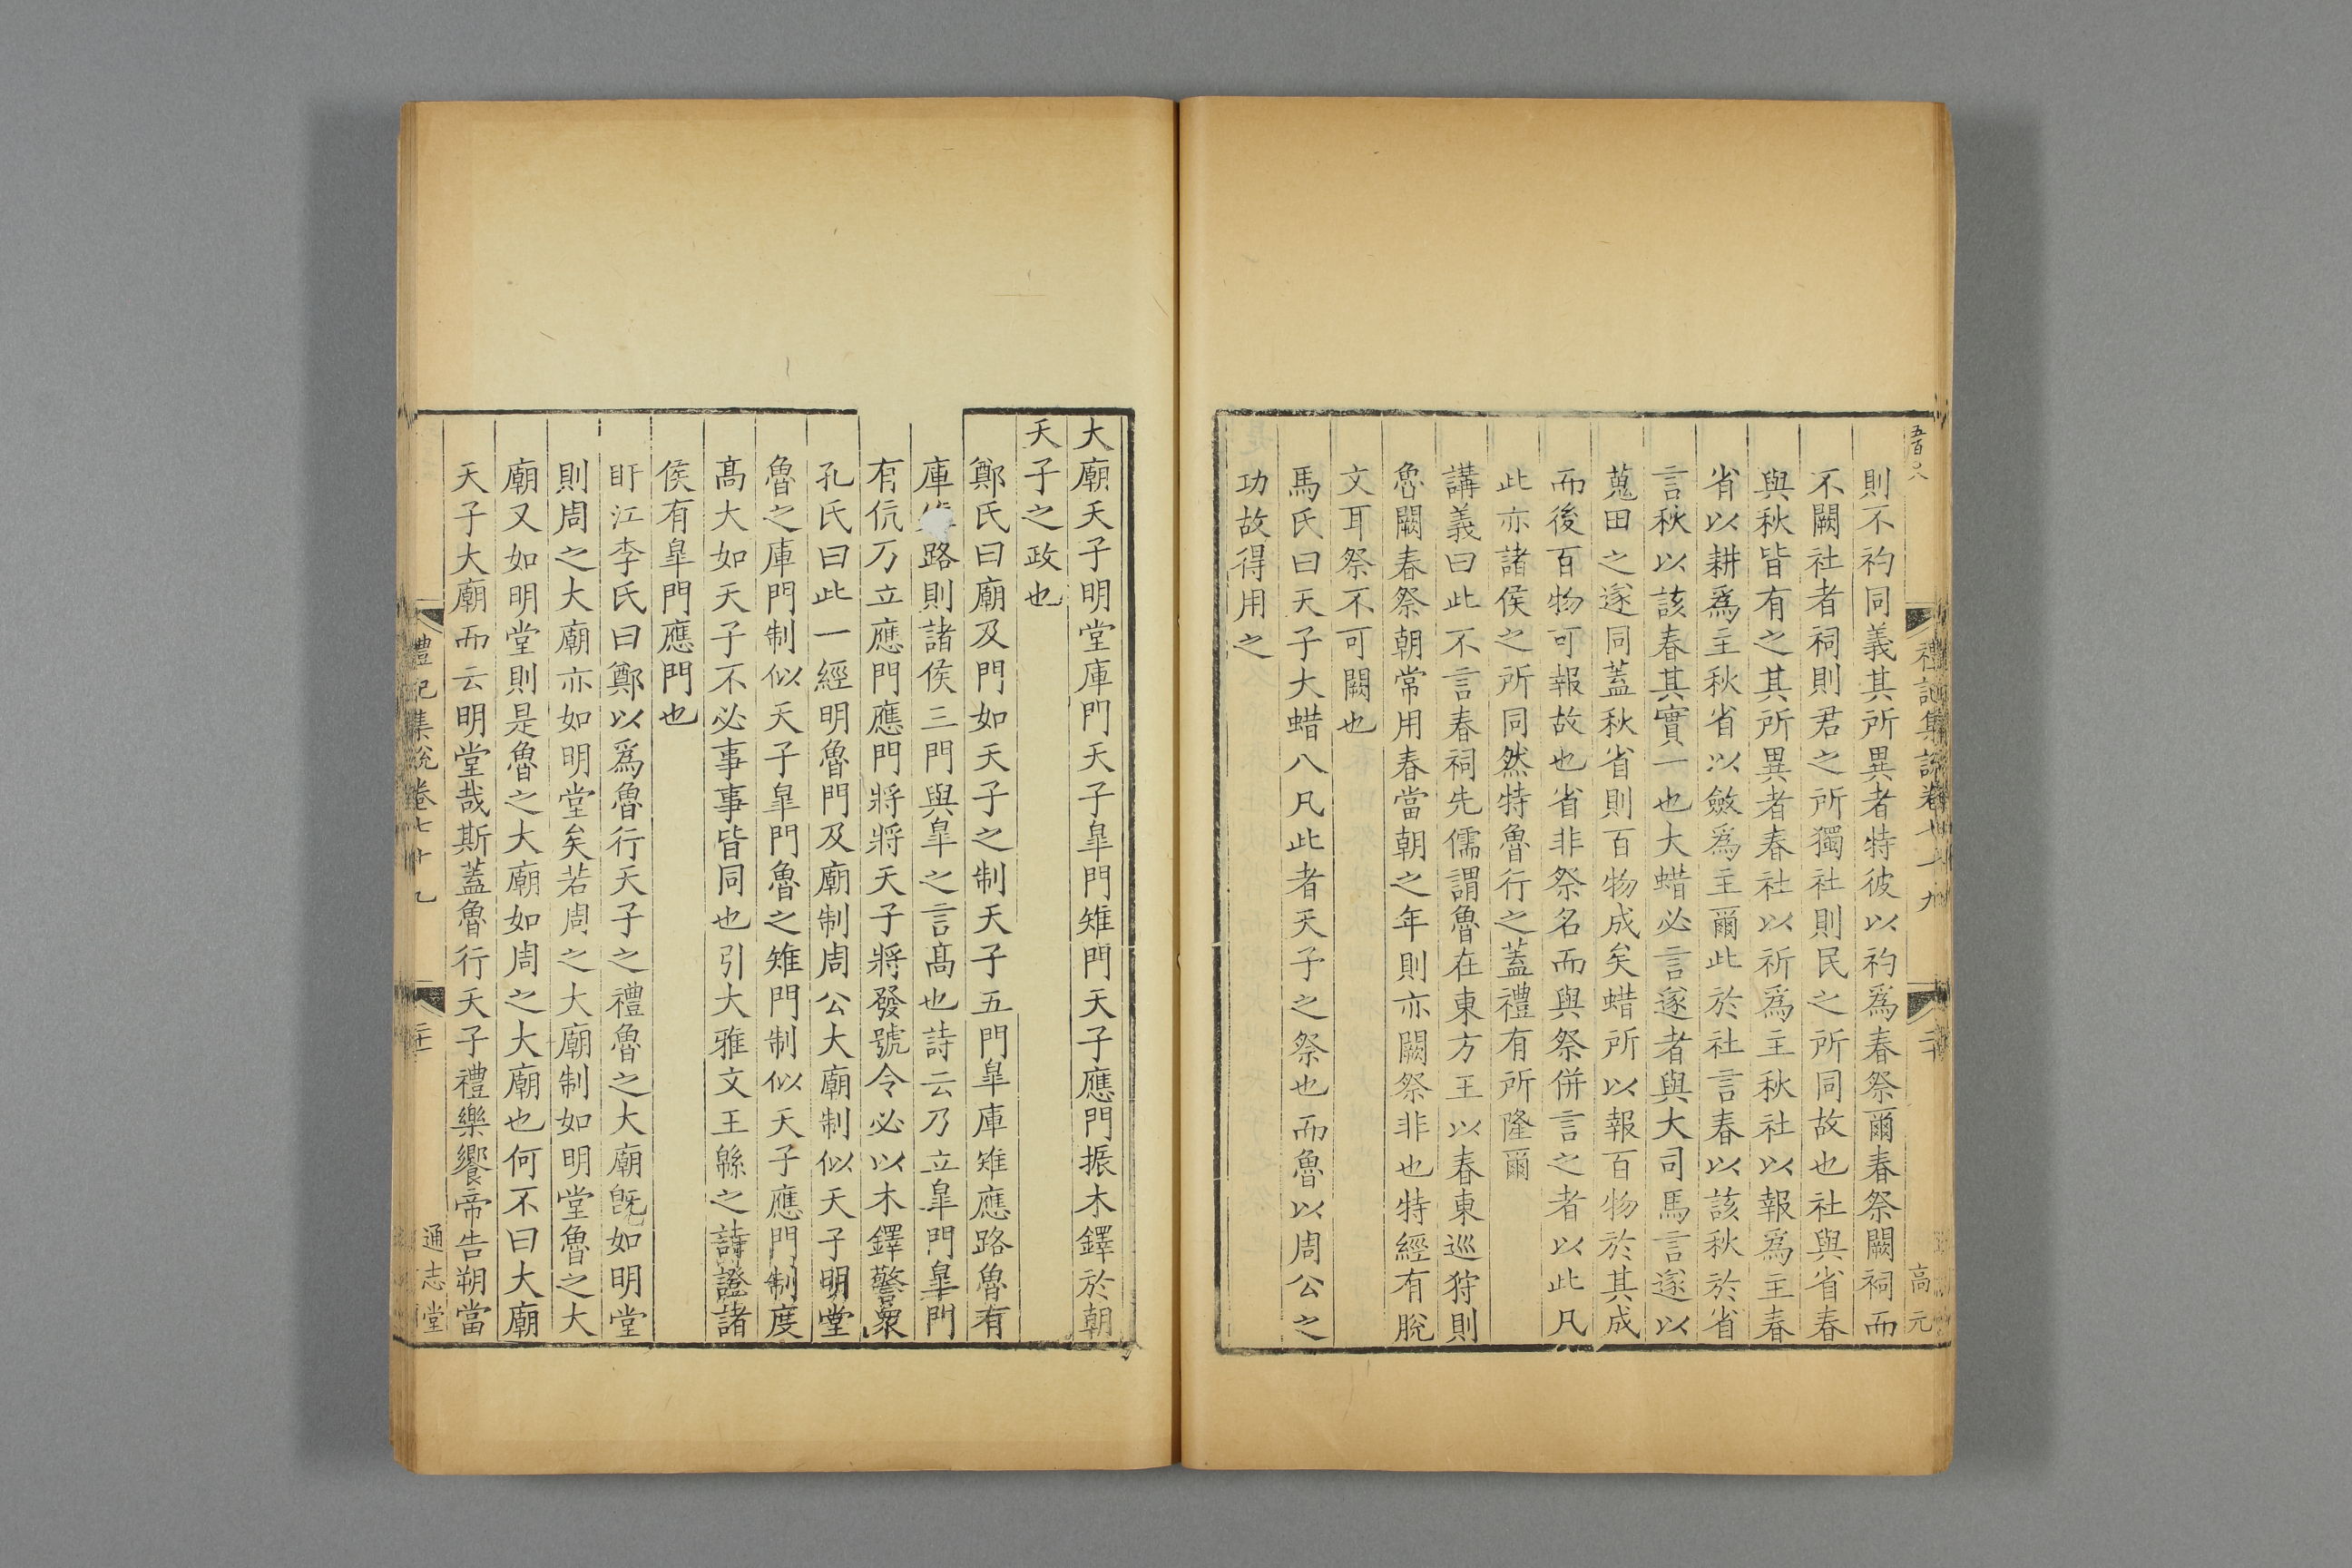 則不礿同義其所異者特彼以礿爲春祭爾春祭闕祠而
不闕社者祠則君之所獨社則民之所同故也社與省春
與秋皆有之其所異者春社以祈爲主秋社以報爲主春
省以耕爲主秋省以斂爲主爾此於社言春以該秋於省
言秋以該春其實一也大蜡必言遂者與大司馬言遂以
蒐田之遂同蓋秋省則百物成矣蜡所以報百物於其成
而後百物可報故也省非祭名而與祭併言之者以此凡
此亦諸侯之所同然特魯行之蓋禮有所隆爾
講義曰此不言春祠先儒謂魯在東方王以春東巡狩則
魯闕春祭朝常用春當朝之年則亦闕祭非也特經有脫
文耳祭不可闕也
馬氏曰天子大蜡八凡此者天子之祭也而魯以周公之
功故得用之
高元
大廟天子明堂庫門天子皐門雉門天子應門振木鐸於朝
天子之政也
鄭氏曰廟及門如天子之制天子五門皐庫雉應路魯有
庫路則諸侯三門與皐之言高也詩云乃立皐門皐門
有伉乃立應門應門將將天子將發號令必以木鐸警衆
孔氏曰此一經明魯門及廟制周公大廟制似天子明堂
魯之庫門制似天子皐門魯之雉門制似天子應門制度
高大如天子不必事事皆同也引大雅文王緜之詩證諸
侯有皐門應門也
盱江李氏曰鄭以爲魯行天子之禮魯之大廟旣如明堂
則周之大廟亦如明堂矣若周之大廟制如明堂魯之大
廟又如明堂則是魯之大廟如周之大廟也何不曰大廟
天子大廟而云明堂哉斯蓋魯行天子禮樂饗帝告朔當
禮記集說卷七十九
二十一
通志堂